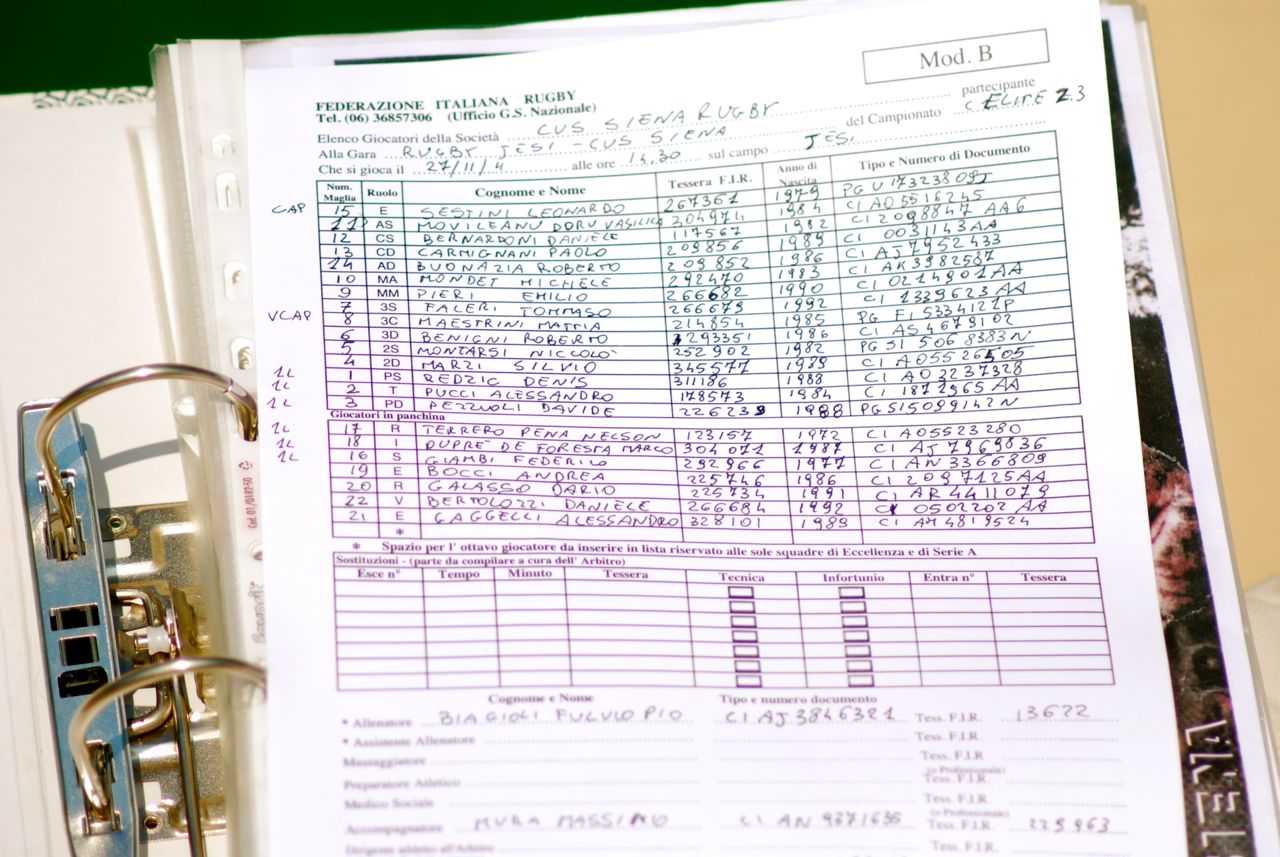 Mod. B
FEDERAZIONE ITALIANA RUGBY
Tel. (06) 36857306 (Ufficio G.S. Nazionale)
Elenco Giocatori della Società CUS SIENA RUGBY partecipante
Alla Gara RUGBY JESI - CUS SIENA del Campionato C ELITE Z3
Che si gioca il 27/11/4 alle ore 14,30 sul campo JESI
Num. Maglia Ruolo Cognome e Nome Tessera F.I.R. Anno di Nascita Tipo e Numero di Documento
CAP 15 E SESTINI LEONARDO 267361 1979 PG U17323809J
11 AS MOVILEANU DORU VASILICA 204974 1984 CI AO5516245
12 CS BERNARDONI DANIELE 117567 1982 CI 2098847 AA6
13 CD CARMIGNANI PAOLO 209856 1989 CI 0031143AA
14 AD BUONAZIA ROBERTO 209852 1986 CI AJ7952433
10 MA MONDET MICHELE 292470 1983 CI AK3982587
9 MM PIERI EMILIO 266682 1990 CI 0214901AA
7 3S FALERI TOMMASO 266679 1992 CI 1339623AA
VCAP 8 3C MAESTRINI MATTIA 214854 1985 PG FI5334121P
6 3D BENIGNI ROBERTO 293351 1986 CI AS4679102
5 2S MONTARSI NICCOLO' 252902 1982 PG SI 5068383N
4 2D MARZI SILVIO 345577 1989 CI AO5526505
1L 1 PS REDZIC DENIS 311186 1988 CI AO2237328
1L 2 T PUCCI ALESSANDRO 178573 1984 CI 1872565AA
1L 3 PD PEZZUOLI DAVIDE 226239 1988 PG SI5099142N
Giocatori in panchina
1L 17 R TERRERO PENA NELSON 123157 1972 CI AO5523280
1L 18 I DUPRE' DE FORESTA MARCO 304071 1987 CI AJ7969836
1L 16 S GIAMBI FEDERICO 292966 1977 CI AN3366809
19 E BOCCI ANDREA 225746 1986 CI 2097125AA
20 R GALASSO DARIO 225734 1991 CI AR4411079
22 V BERTOLOZZI DANIELE 266684 1992 CI 0502202AA
21 E GAGGELLI ALESSANDRO 328101 1989 CI AM4819524
*
* Spazio per l' ottavo giocatore da inserire in lista riservato alle sole squadre di Eccellenza e di Serie A
Sostituzioni - (parte da compilare a cura dell' Arbitro)
Esce n° Tempo Minuto Tessera Tecnica Infortunio Entra n° Tessera
Cognome e Nome Tipo e numero documento
* Allenatore BIAGIOLI FULVIO PIO CI AJ3846321 Tess. F.I.R. 13622
* Assistente Allenatore Tess. F.I.R.
Massaggiatore Tess. F.I.R.
(o Professionale)
Preparatore Atletico Tess. F.I.R.
Medico Sociale Tess. F.I.R.
(o Professionale)
Accompagnatore MURA MASSIMO CI AN 9371636 Tess. F.I.R. 225963
Dirigente addetto all'Arbitro Tess. F.I.R.